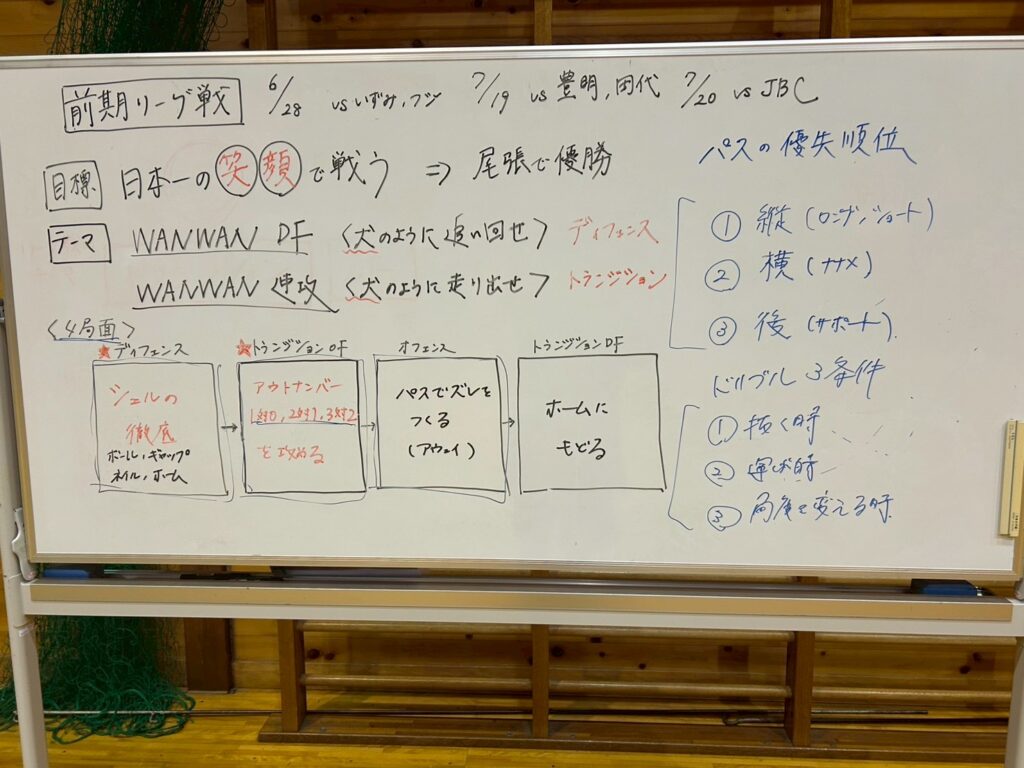 前期リーグ戦 6/28 vs いずみ,フジ 7/19 vs 豊明,田代 7/20 vs JBC
目標 日本一の笑顔で戦う ⇒ 尾張で優勝
テーマ WANWAN DF 〈犬のように追い回せ〉 ディフェンス
WANWAN 速攻 〈犬のように走り出せ〉 トランジション
〈4局面〉
★ディフェンス
シェルの
徹底
ボール,ギャップ
ネイル,ホーム
→
★トランジションOF
アウトナンバー
1対0,2対1,3対2
を攻める
→
オフェンス
パスでズレを
つくる
(アウェイ)
→
トランジションDF
ホームに
もどる
パスの優失順位
① 縦(ロング/ショート)
② 横(ナナメ)
③ 後(サポート)
ドリブル 3条件
① 抜く時
② 運ぶ時
③ 角度を変える時